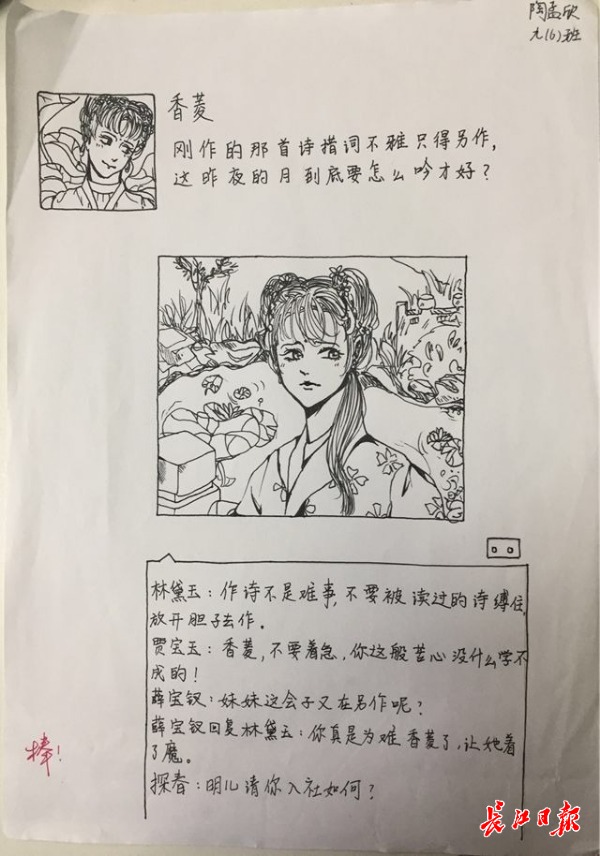 陶孟欣
九(6)班
香菱
刚作的那首诗措词不雅只得另作,
这昨夜的月到底要怎么吟才好?
林黛玉:作诗不是难事,不要被读过的诗缚住,
放开胆子去作。
贾宝玉:香菱,不要着急,你这般苦心没什么学不
成的!
薛宝钗:妹妹这会子又在另作呢?
薛宝钗回复林黛玉:你真是为难香菱了,让她着
了魔。
探春:明儿请你入社如何?
棒!
长江日报